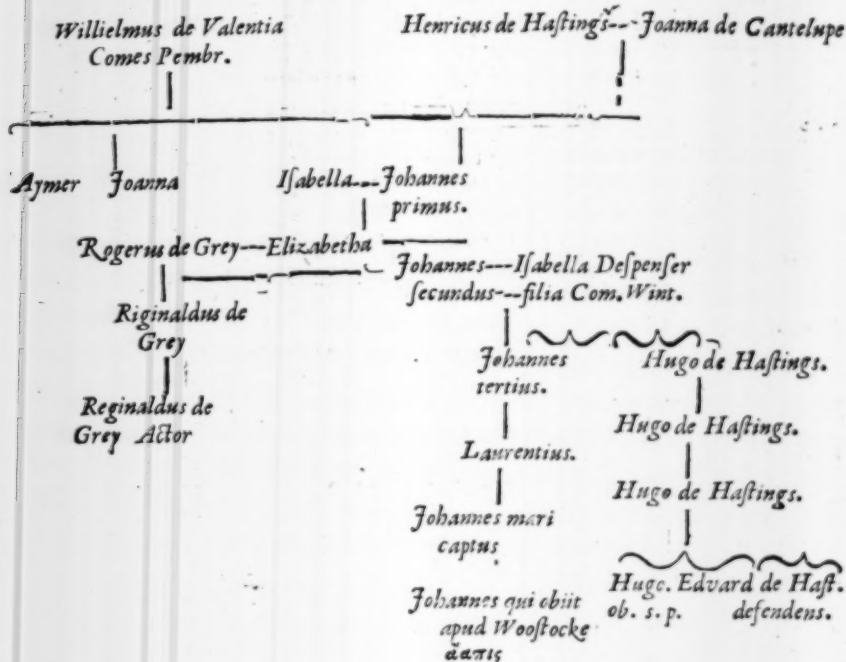 Willielmus de Valentia
Comes Pembr.
Henricus de Haſtings---Joanna de Cantelupe
Aymer Joanna Iſabella---Johannes
primus.
Rogerus de Grey---Elizabetha
Johannes---Iſabella Deſpenſer
ſecundus---filia Com. Wint.
Riginaldus de
Grey
Johannes
tertius.
Hugo de Haſtings.
Reginaldus de
Grey Actor
Hugo de Haſtings.
Laurentius.
Hugo de Haſtings.
Johannes mari
captus
Hugc. Edvard de Haſt.
ob. s. p. defendens.
Johannes qui obiit
apud Wooſtocke